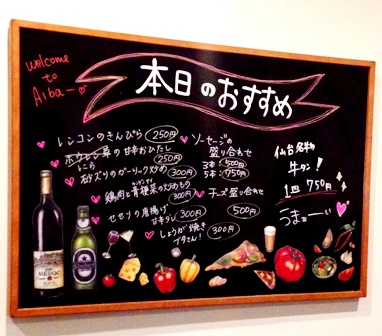 welcome
to
Aiba—
本日のおすすめ
レンコンのきんぴら 250円
ホウレン草の甘辛おひたし
250円
砂ズリのガーリック炒め
300円
鶏肉と青梗菜の炒めもの
300円
セセリの唐揚げ
甘辛ダレ 300円
しょうが焼き
ブタさん! 300円
ソーセージの
盛り合わせ
3本 500円
5本 750円
チーズ盛り合わせ
500円
仙台名物
牛タン!
1皿 750円
うまぉーい
MEDOC